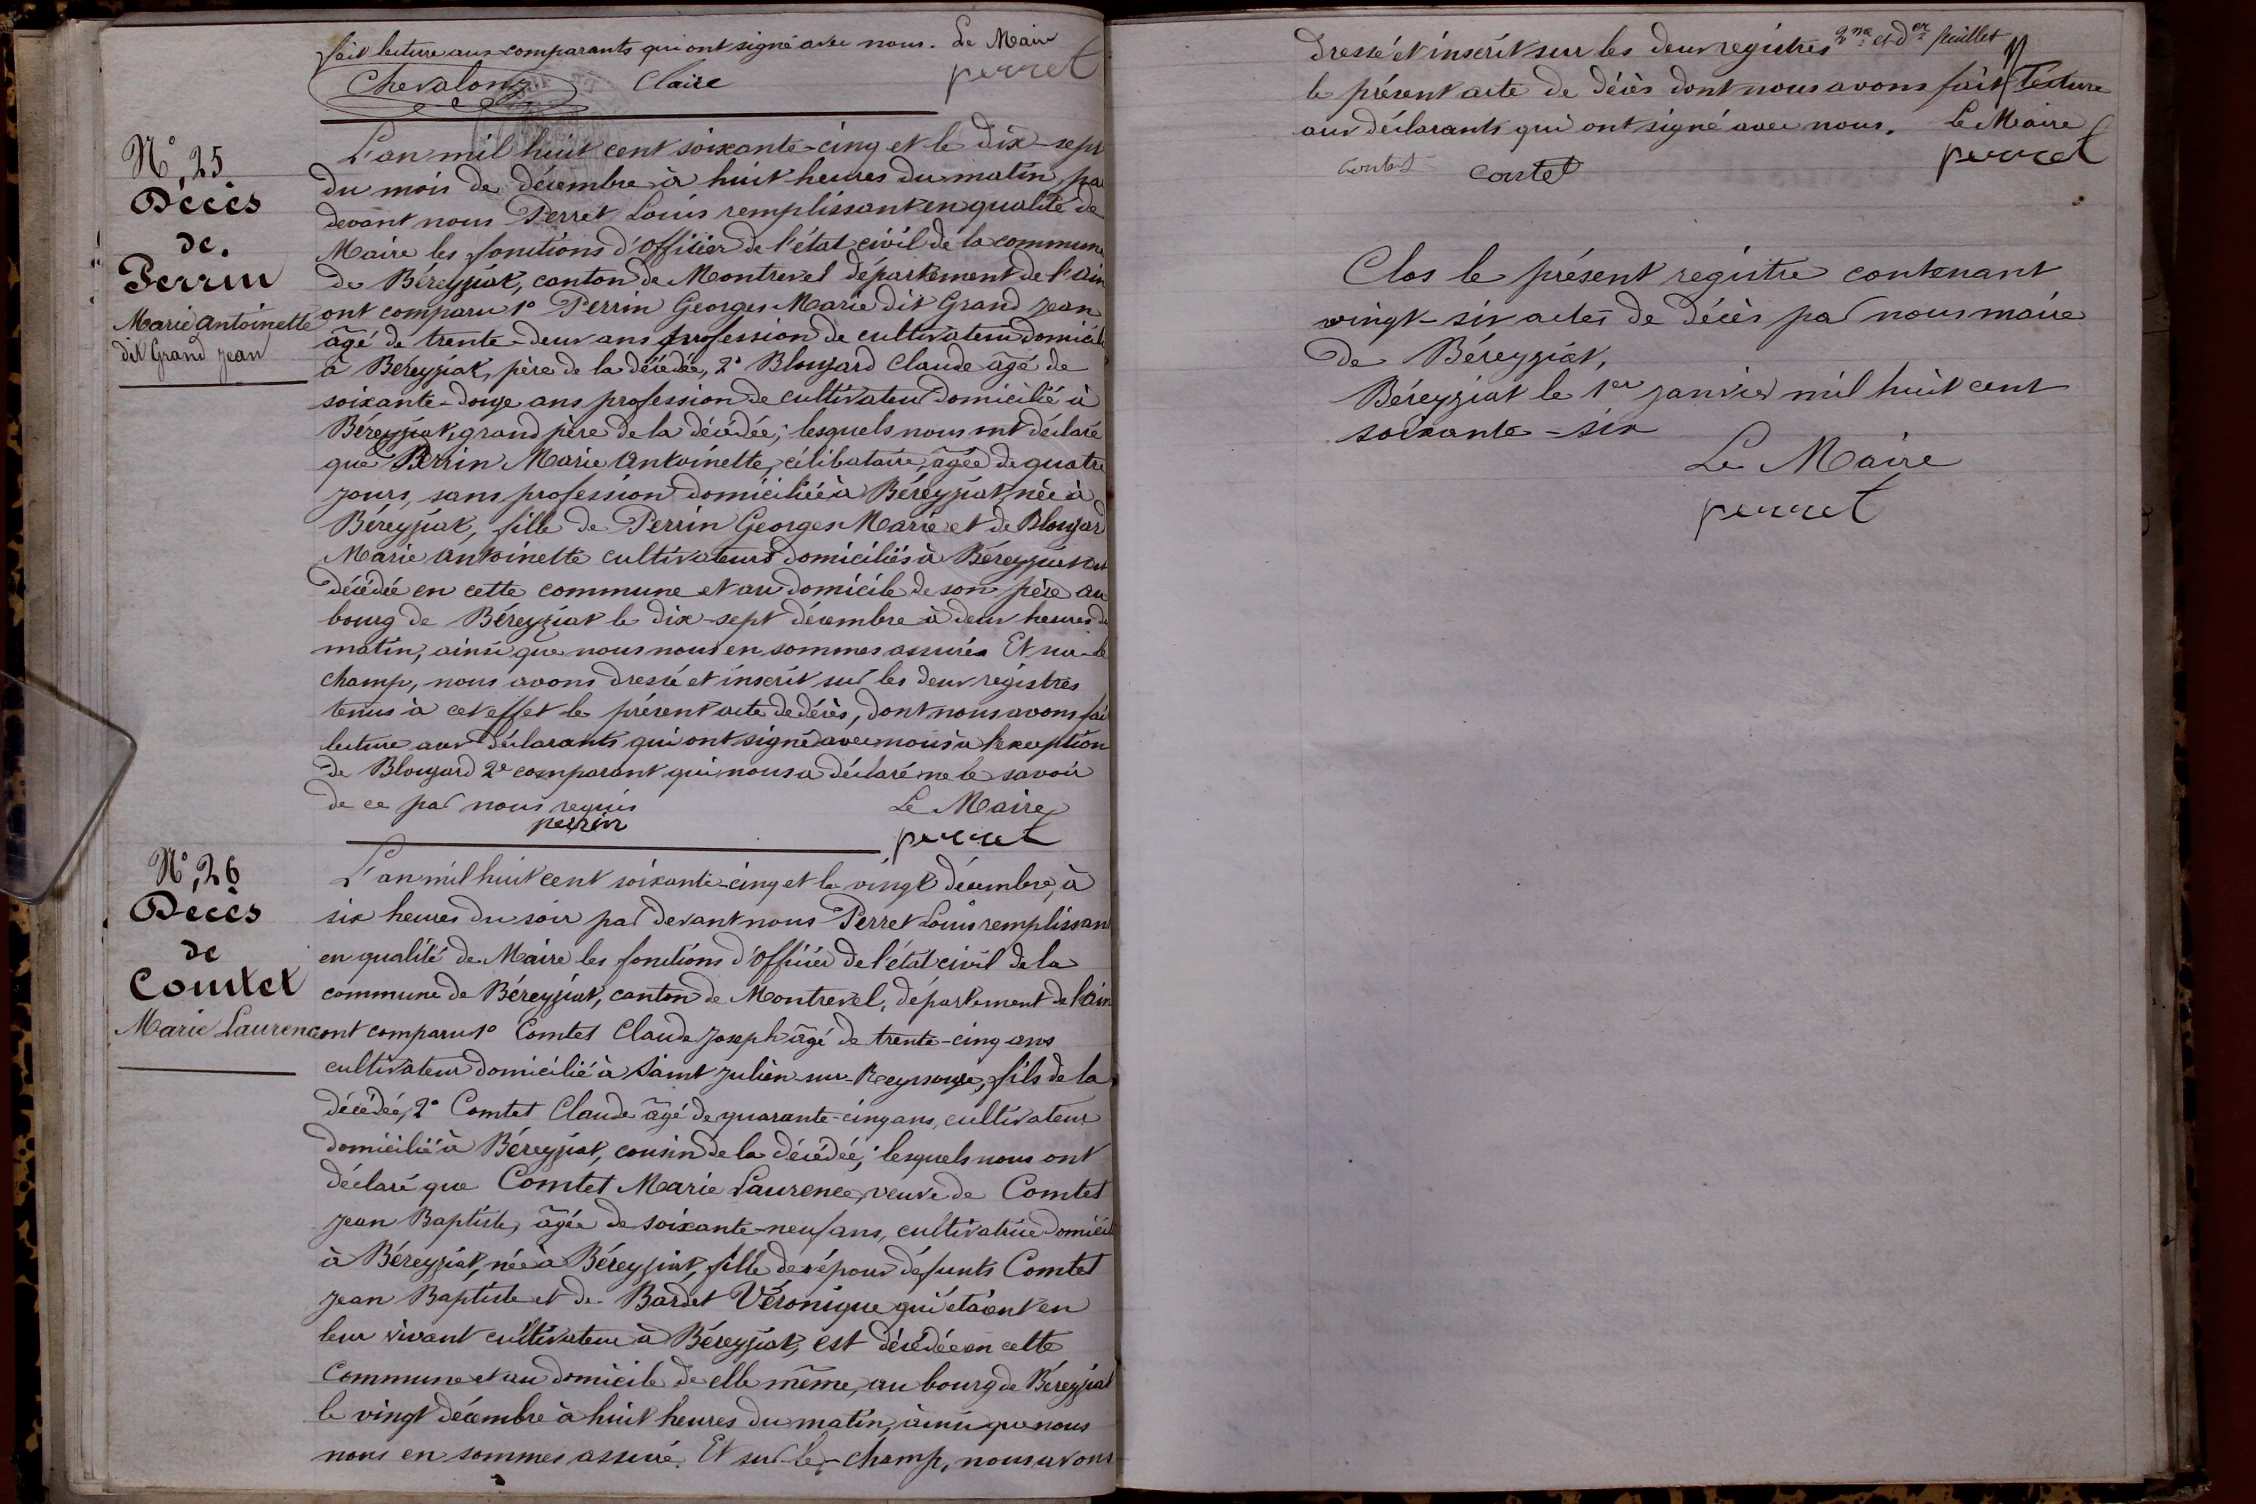 fait lecture aux comparants qui ont signé avec nous. Le Maire
Chevalon Claire perret
N°, 25
Décès
de.
Perrin
Marie Antoinette
dit Grand Jean
L'an mil huit cent soixante-cinq et le dix-sept
du mois de décembre à huit heures du matin, pa
devant nous Perret Louis remplissant en qualité de
Maire les fonctions d'Officier de l'état civil de la commune
de Béreyziat, canton de Montrevel département de l'ain
ont comparu 1° Perrin Georges Marie dit Grand Jean
âgé de trente-deux ans profession de cultivateur domicili
à Béreyziat, père de la décédée, 2° Blouzard Claude âgé de
soixante-douze ans profession de cultivateur domicilié à
Béreyziat, grand père de la décédée; lesquels nous ont déclaré
que Perrin Marie Antoinette, célibataire, âgée de quatre
jours, sans profession domiciliée à Béreyziat, née à
Béreyziat, fille de Perrin Georges Marie et de Blouzard
Marie Antoinette cultivateurs domiciliés à Béreyziat est
décédée en cette commune et au domicile de son père au
bourg de Béreyziat le dix-sept décembre à deux heures du
matin, ainsi que nous nous en sommes assurés Et sur-le
champ, nous avons dressé et inscrit sur les deux régistres
tenus à cet effet le présent acte de décès, dont nous avons fai
lecture aux déclarants qui ont signé avec nous à l'exception
de Blouzard 2e comparant qui nous a déclaré ne le savoir
de ce par nous requis Le Maire
perrin perret
N°, 26
Décès
de
Comtet
Marie Laurence
L'an mil huit cent soixante-cinq et le vingt décembre, à
six heures du soir par devant nous Perret Louis remplissan
en qualité de Maire les fonctions d'Officier de l'état civil de la
commune de Béreyziat, canton de Montrevel, département de l'ain
ont comparu 1° Comtet Claude Joseph âgé de trente-cinq ans
cultivateur domicilié à Saint Julien-sur-Reyssouze, fils de la
décédée, 2° Comtet Claude âgé de quarante-cinq ans, cultivateur
domicilié à Béreyziat, cousin de la décédée; lesquels nous ont
déclaré que Comtet Marie Laurence, veuve de Comtet
Jean Baptiste, âgée de soixante-neuf ans, cultivatrice domicil
à Béreyziat, née à Béreyziat, fille des époux défunts Comtet
Jean Baptiste et de Bardet Véronique qui étaient en
leur vivant cultivateur à Béreyziat, est décédée en cette
commune et au domicile de elle même, au bourg de Béreyziat
le vingt décembre à huit heures du matin, ainsi que nous
nous en sommes assuré. Et sur-le-champ, nous avons
dressé et inscrit sur les deux registres 2me et der feuillet
le présent acte de décès dont nous avons fait lecture
aux déclarants qui ont signé avec nous. Le Maire
contet contet perret
Clos le présent registre contenant
vingt-six actes de décès par nous maire
de Béreyziat,
Béreyziat le 1er janvier mil huit cent
soixante-six
Le Maire
perret